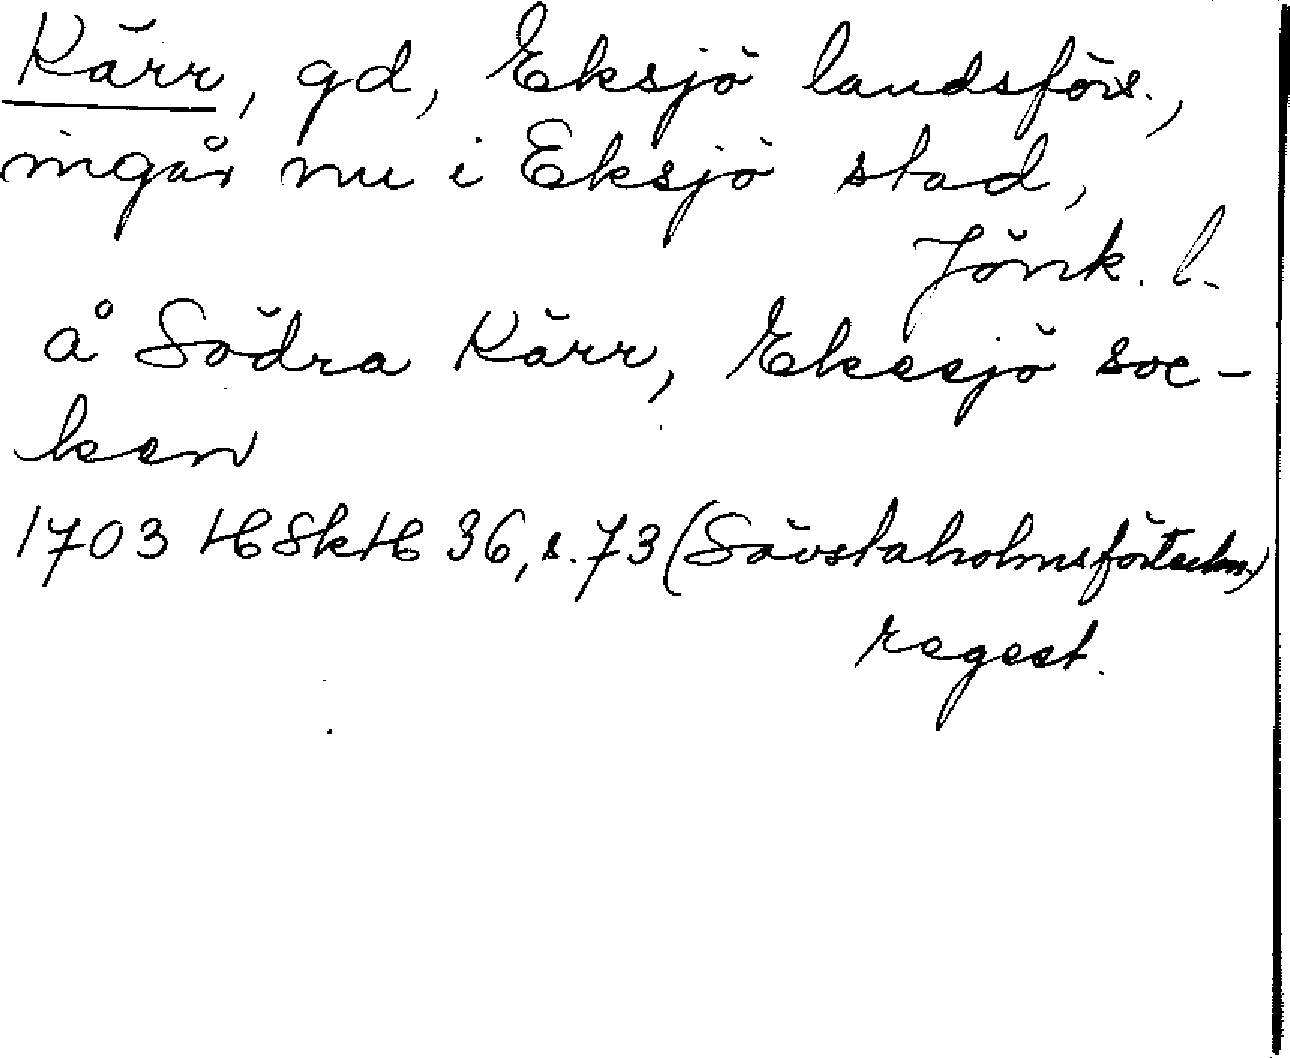 Kärr, gd, Eksjö landsförs.,
ingår nu i Eksjö stad,
Jönk. l.
å Södra Kärr, Ekesjö soc-
ken
1703 HSkH 36, s. 73 (Sävstaholmsförteckn.)
regest.